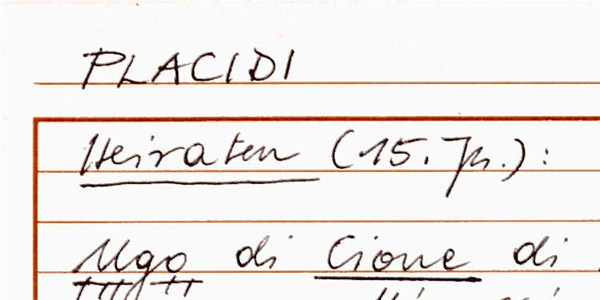 PLACIDI
Heiraten (15. Jh.):
Ugo di Cione di